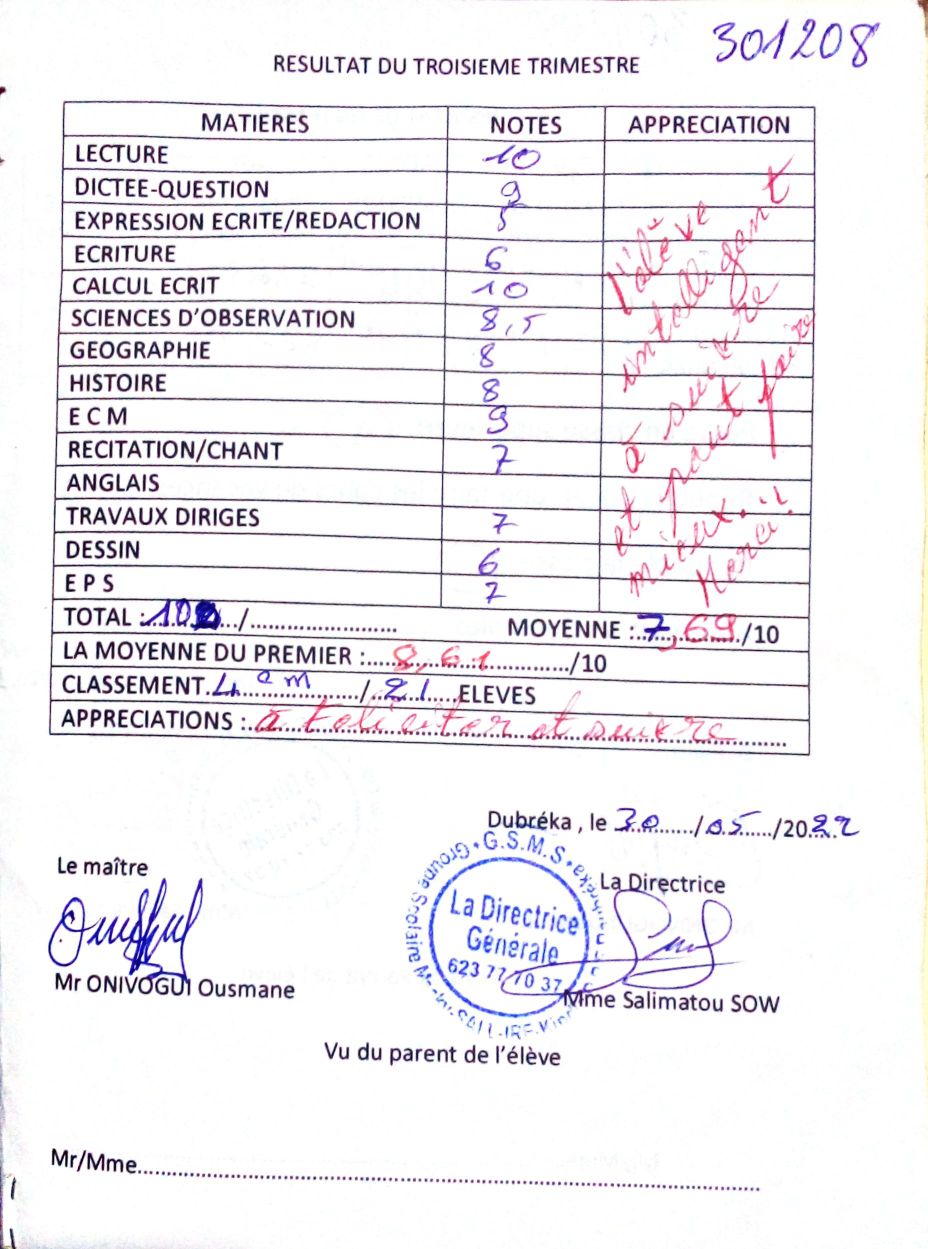 301208
RESULTAT DU TROISIEME TRIMESTRE
MATIERES NOTES APPRECIATION
LECTURE 10
DICTEE-QUESTION 9
EXPRESSION ECRITE/REDACTION 5
ECRITURE 6
CALCUL ECRIT 10
SCIENCES D'OBSERVATION 8,5
GEOGRAPHIE 8
HISTOIRE 8
E C M 9
RECITATION/CHANT 7
ANGLAIS
TRAVAUX DIRIGES 7
DESSIN 6
E P S 7
l'élève
intelligent
à suivre
et peut faire
mieux.
Merci
TOTAL :10...../........................... MOYENNE :7,69/10
LA MOYENNE DU PREMIER :8,61/10
CLASSEMENT.4em/21 ELEVES
APPRECIATIONS :à feliciter et suivre
Dubréka , le 30/05/2022
Le maître
La Directrice
G.S.M.S
Groupe Scolaire
La Directrice
Générale
623 77 70 37
Mr ONIVOGUI Ousmane
Mme Salimatou SOW
Vu du parent de l'élève
Mr/Mme..........................................................................